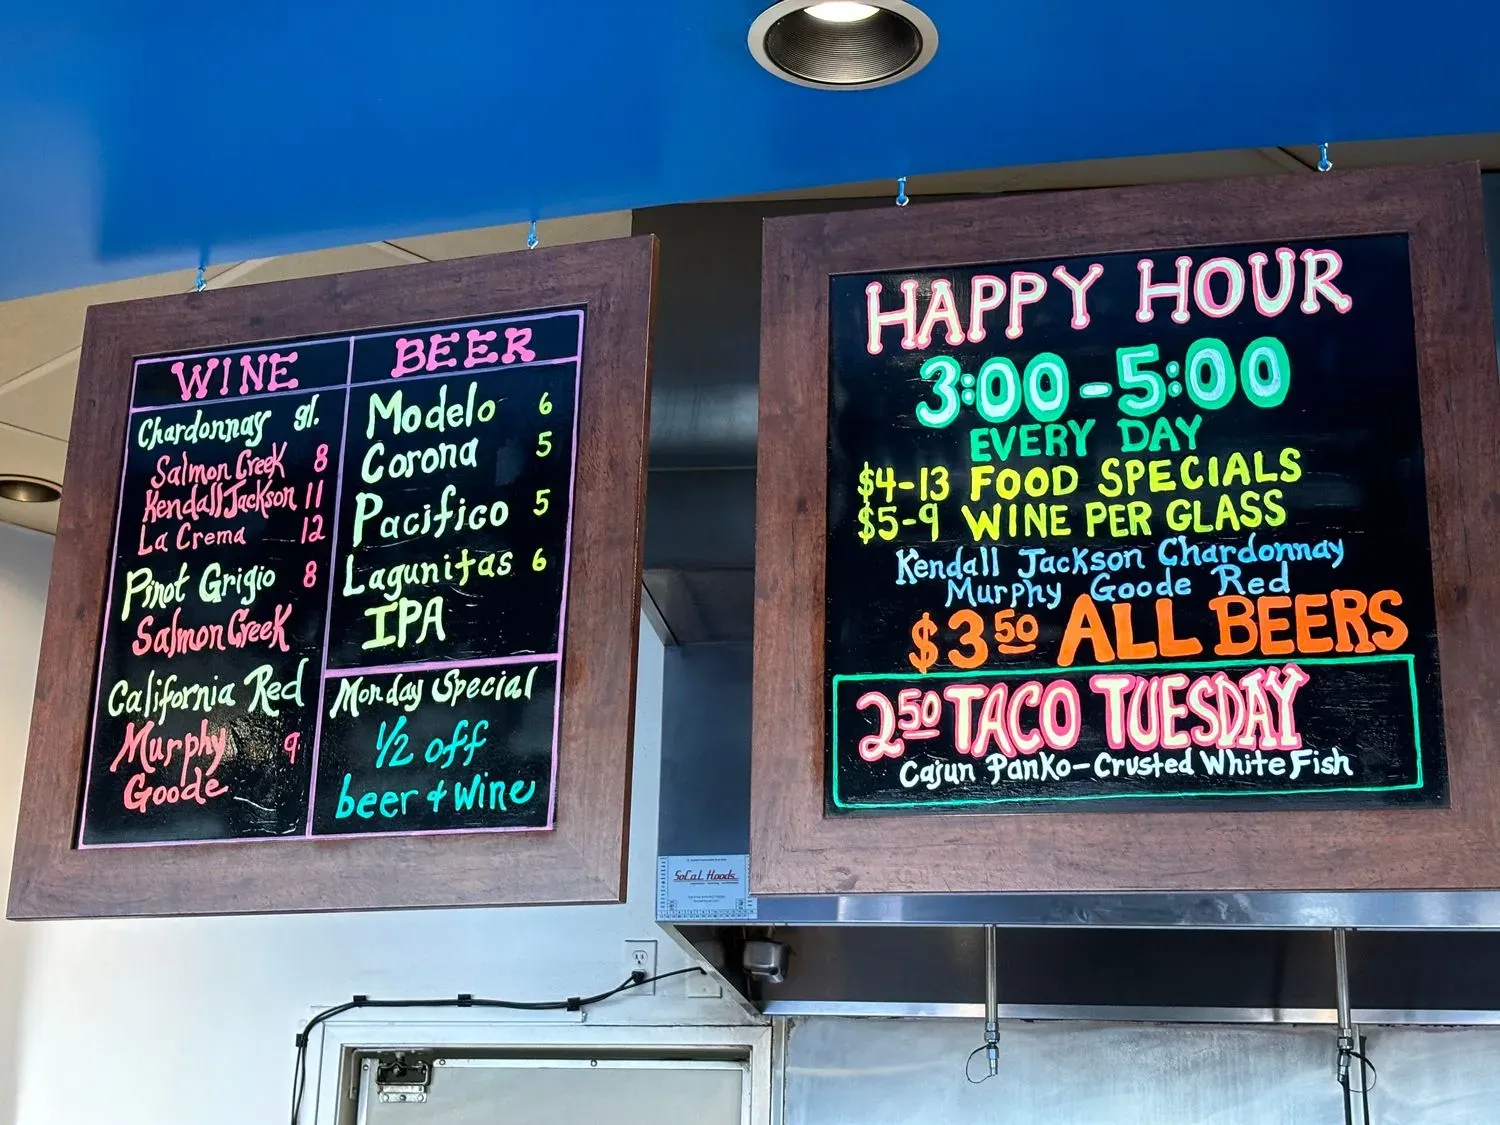 WINE
Chardonnay gl.
Salmon Creek 8
Kendall Jackson 11
La Crema 12
Pinot Grigio 8
Salmon Creek
California Red
Murphy 9
Goode
BEER
Modelo 6
Corona 5
Pacifico 5
Lagunitas 6
IPA
Monday Special
1/2 off
beer & wine
HAPPY HOUR
3:00-5:00
EVERY DAY
$4-13 FOOD SPECIALS
$5-9 WINE PER GLASS
Kendall Jackson Chardonnay
Murphy Goode Red
$3.50 ALL BEERS
2.50 TACO TUESDAY
Cajun Panko-Crusted White Fish
SoCal Hoods